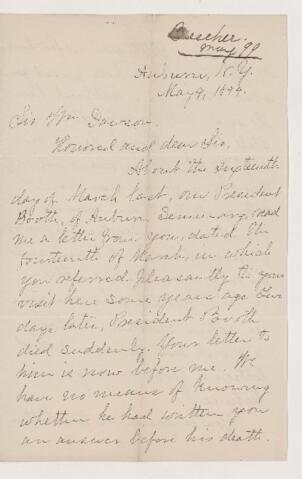 Beecher.
May 99
Auburn, N.Y.
May 9, 1899.
Sir Wm. Dawson.
Honored and dear Sir,
About the sixteenth
day of March last, our President
Booth, of Auburn Seminary, read
me a letter from you, dated the
fourteenth of March, in which
you referred pleasantly to your
visit here some years ago. Four
days later, President Booth
died suddenly. Your letter to
him is now before me. We
have no means of knowing
whether he had written you
an answer before his death.